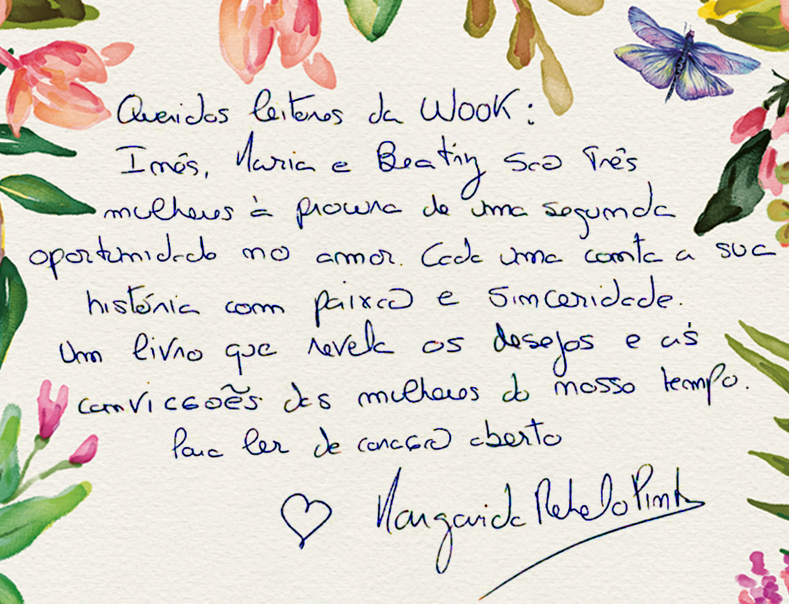 Queridos leitores da WOOK:
Inês, Maria e Beatriz são três
mulheres à procura de uma segunda
oportunidade no amor. Cada uma conta a sua
história com paixão e sinceridade.
Um livro que revela os desejos e as
convicções das mulheres do nosso tempo.
Para ler de coração aberto
Margarida Rebelo Pinto